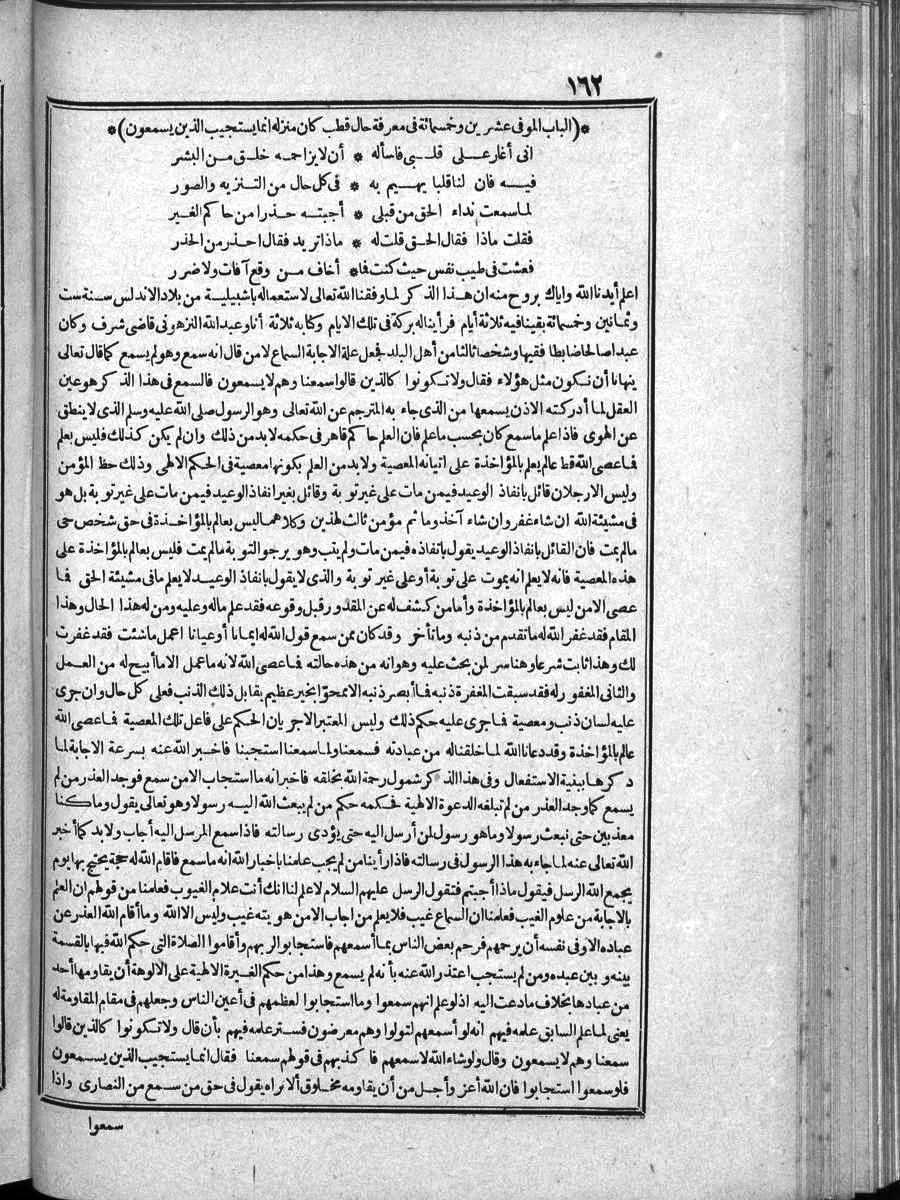 ١٦٢
*(الباب الموفى عشرين وخمسمائة فى معرفة حال قطب كان منزله انما يستجيب الذين يسمعون)*
انى أغار على قلبى فاسأله * أن لا يزاحمه خلق من البشر
فيه فان لنا قلبا يهيم به * فى كل حال من التنزيه والصور
لما سمعت نداء الحق من قبلى * أجبته حذرا من حاكم الغير
فقلت ماذا فقال الحق قلت له * ماذا تريد فقال احذر من الحذر
فعشت فى طيب نفس حيث كنت فما * أخاف من وقع آفات ولا ضرر
اعلم أيدنا الله واياك بروح منه ان هذا الذكر لما وفقنا الله تعالى لاستعماله باشبيلية من بلاد الاندلس سنة ست
وثمانين وخمسمائة بقينا فيه ثلاثة أيام فرأينا له بركة فى تلك الايام وكنا به ثلاثة أنا وعبد الله النزهونى قاضى شرف وكان
عبدا صالحا ضابطا فقيها وشخصا ثالثا من أهل البلد فجعل علة الاجابة السماع لا من قال انه سمع وهو لم يسمع كما قال تعالى
ينهانا أن نكون مثل هؤلاء فقال ولا تكونوا كالذين قالوا سمعنا وهم لا يسمعون فالسمع فى هذا الذكر هو عين
العقل لما أدركته الاذن بسمعها من الذى جاء به المترجم عن الله تعالى وهو الرسول صلى الله عليه وسلم الذى لا ينطق
عن الهوى فاذا علم ما سمع كان بحسب ما علم فان العلم حاكم قاهر فى حكمه لا بد من ذلك وان لم يكن كذلك فليس بعلم
فما عصى الله قط عالم يعلم بالمؤاخذة على اتيانه المعصية ولا بد من العلم بكونها معصية فى الحكم الالهى وذلك حظ المؤمن
وليس الا رجلان قائل بانفاذ الوعيد فيمن مات على غير توبة وقائل بغير انفاذ الوعيد فيمن مات على غير توبة بل هو
فى مشيئة الله ان شاء غفر وان شاء آخذ وما ثم مؤمن ثالث لهذين وكلاهما ليس بعالم بالمؤاخذة فى حق شخص حى
مالم يمت فان القائل بانفاذ الوعيد يقول بانفاذه فيمن مات ولم يتب وهو يرجو التوبة مالم يمت فليس بعالم بالمؤاخذة على
هذه المعصية فانه لا يعلم انه يموت على توبة أو على غير توبة والذى لا يقول بانفاذ الوعيد لا يعلم ما فى مشيئة الحق فما
عصى الا من ليس بعالم بالمؤاخذة وأما من كشف له عن المقدور قبل وقوعه فقد علم ماله وعليه ومن له هذا الحال وهذا
المقام فقد غفر الله له ما تقدم من ذنبه وما تأخر وقد كان ممن سمع قول الله له ايمانا أو عيانا اعمل ما شئت فقد غفرت
لك وهذا ثابت شرعا وهنا سر لمن بحث عليه وهو انه من هذه حالته فما عصى الله لانه ما عمل الا ما أبيح له من العمل
والثانى المغفور له فقد سبقت المغفرة ذنبه فما أبصر ذنبه الا ممحوا بخير عظيم يقابل ذلك الذنب فعلى كل حال وان جرى
عليه لسان ذنب ومعصية فما جرى عليه حكم ذلك وليس المعتبر الا جريان الحكم على فاعل تلك المعصية فما عصى الله
عالم بالمؤاخذة وقد دعانا الله لما خلقنا له من عبادته فسمعنا ولما سمعنا استجبنا فاخبر الله عنه بسرعة الاجابة لما
ذكرها ببنية الاستفعال وفى هذا الذكر شمول رحمة الله بخلقه فاخبر انه ما استجاب الا من سمع فوجد العذر من لم
يسمع كما وجد العذر من لم تبلغه الدعوة الالهية فحكمه حكم من لم يبعث الله اليه رسولا وهو تعالى يقول وما كنا
معذبين حتى نبعث رسولا وما هو رسول لمن أرسل اليه حتى يؤدى رسالته فاذا سمع المرسل اليه أجاب ولا بد كما أخبر
الله تعالى عنه لما جاء به هذا الرسول فى رسالته فاذا رأينا من لم يجب علمنا باخبار الله انه ما سمع فاقام الله له حجة يحتج بها يوم
يجمع الله الرسل فيقول ماذا أجبتم فتقول الرسل عليهم السلام لا علم لنا انك أنت علام الغيوب فعلمنا من قولهم ان العلم
بالاجابة من علوم الغيب فعلمنا ان السماع غيب فلا يعلم من اجاب الا من هويته غيب وليس الا الله وما أقام الله العذر عن
عباده الا وفى نفسه أن يرحمهم فرحم بعض الناس بما أسمعهم فاستجابوا لربهم وأقاموا الصلاة التى حكم الله فيها بالقسمة
بينه وبين عبده ومن لم يستجب اعتذر الله عنه بأنه لم يسمع وهذا من حكم الغيرة الالهية على الالوهة أن يقاومها أحد
من عبادها بخلاف ما دعت اليه اذ لو علم انهم سمعوا وما استجابوا لعظمهم فى أعين الناس وجعلهم فى مقام المقاومة له
يعنى لما علم السابق علمه فيهم انه لو أسمعهم لتولوا وهم معرضون فستر علمه فيهم بأن قال ولا تكونوا كالذين قالوا
سمعنا وهم لا يسمعون وقال ولو شاء الله لاسمعهم فاكذبهم فى قولهم سمعنا فقال انما يستجيب الذين يسمعون
فلو سمعوا استجابوا فان الله أعز وأجل من أن يقاومه مخلوق ألا نراه يقول فى حق من سمع من النصارى واذا
سمعوا